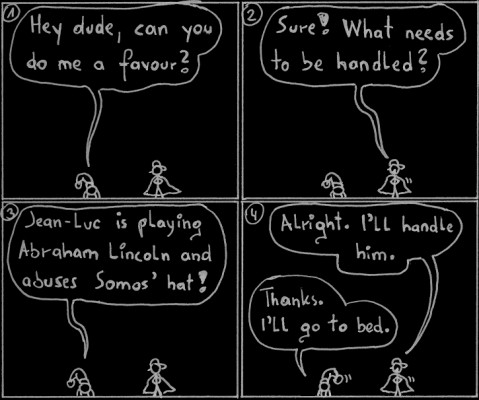 1
Hey dude, can you
do me a favour?
2
Sure! What needs
to be handled?
3
Jean-Luc is playing
Abraham Lincoln and
abuses Somos' hat!
4
Alright. I'll handle
him.
Thanks.
I'll go to bed.